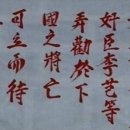 奸臣李芑等
弄權於下
國之將亡
可立而待